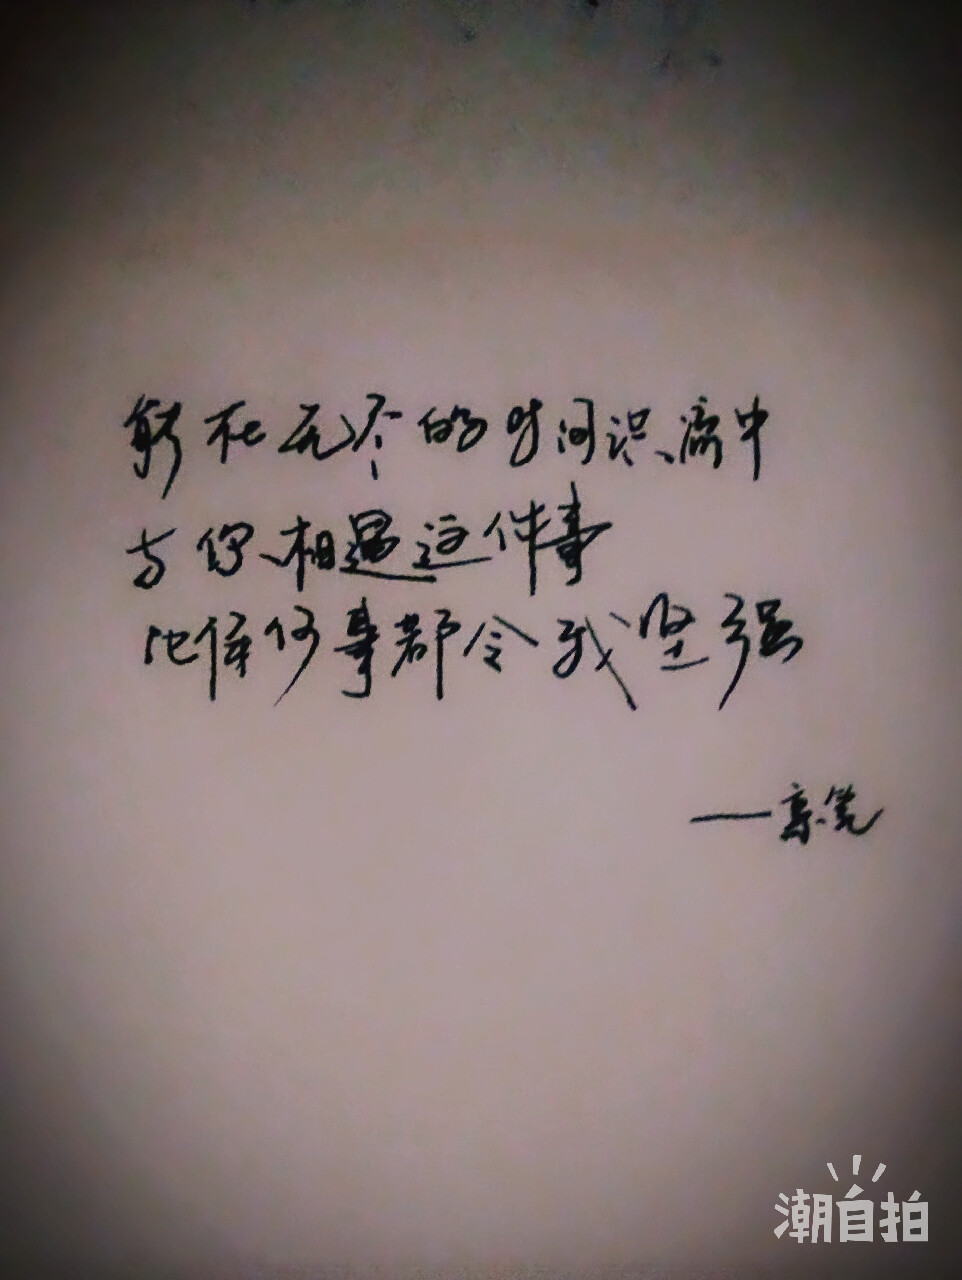 能在无尽的时间识流中
与你相遇这件事
比任何事都令我坚强
潮自拍